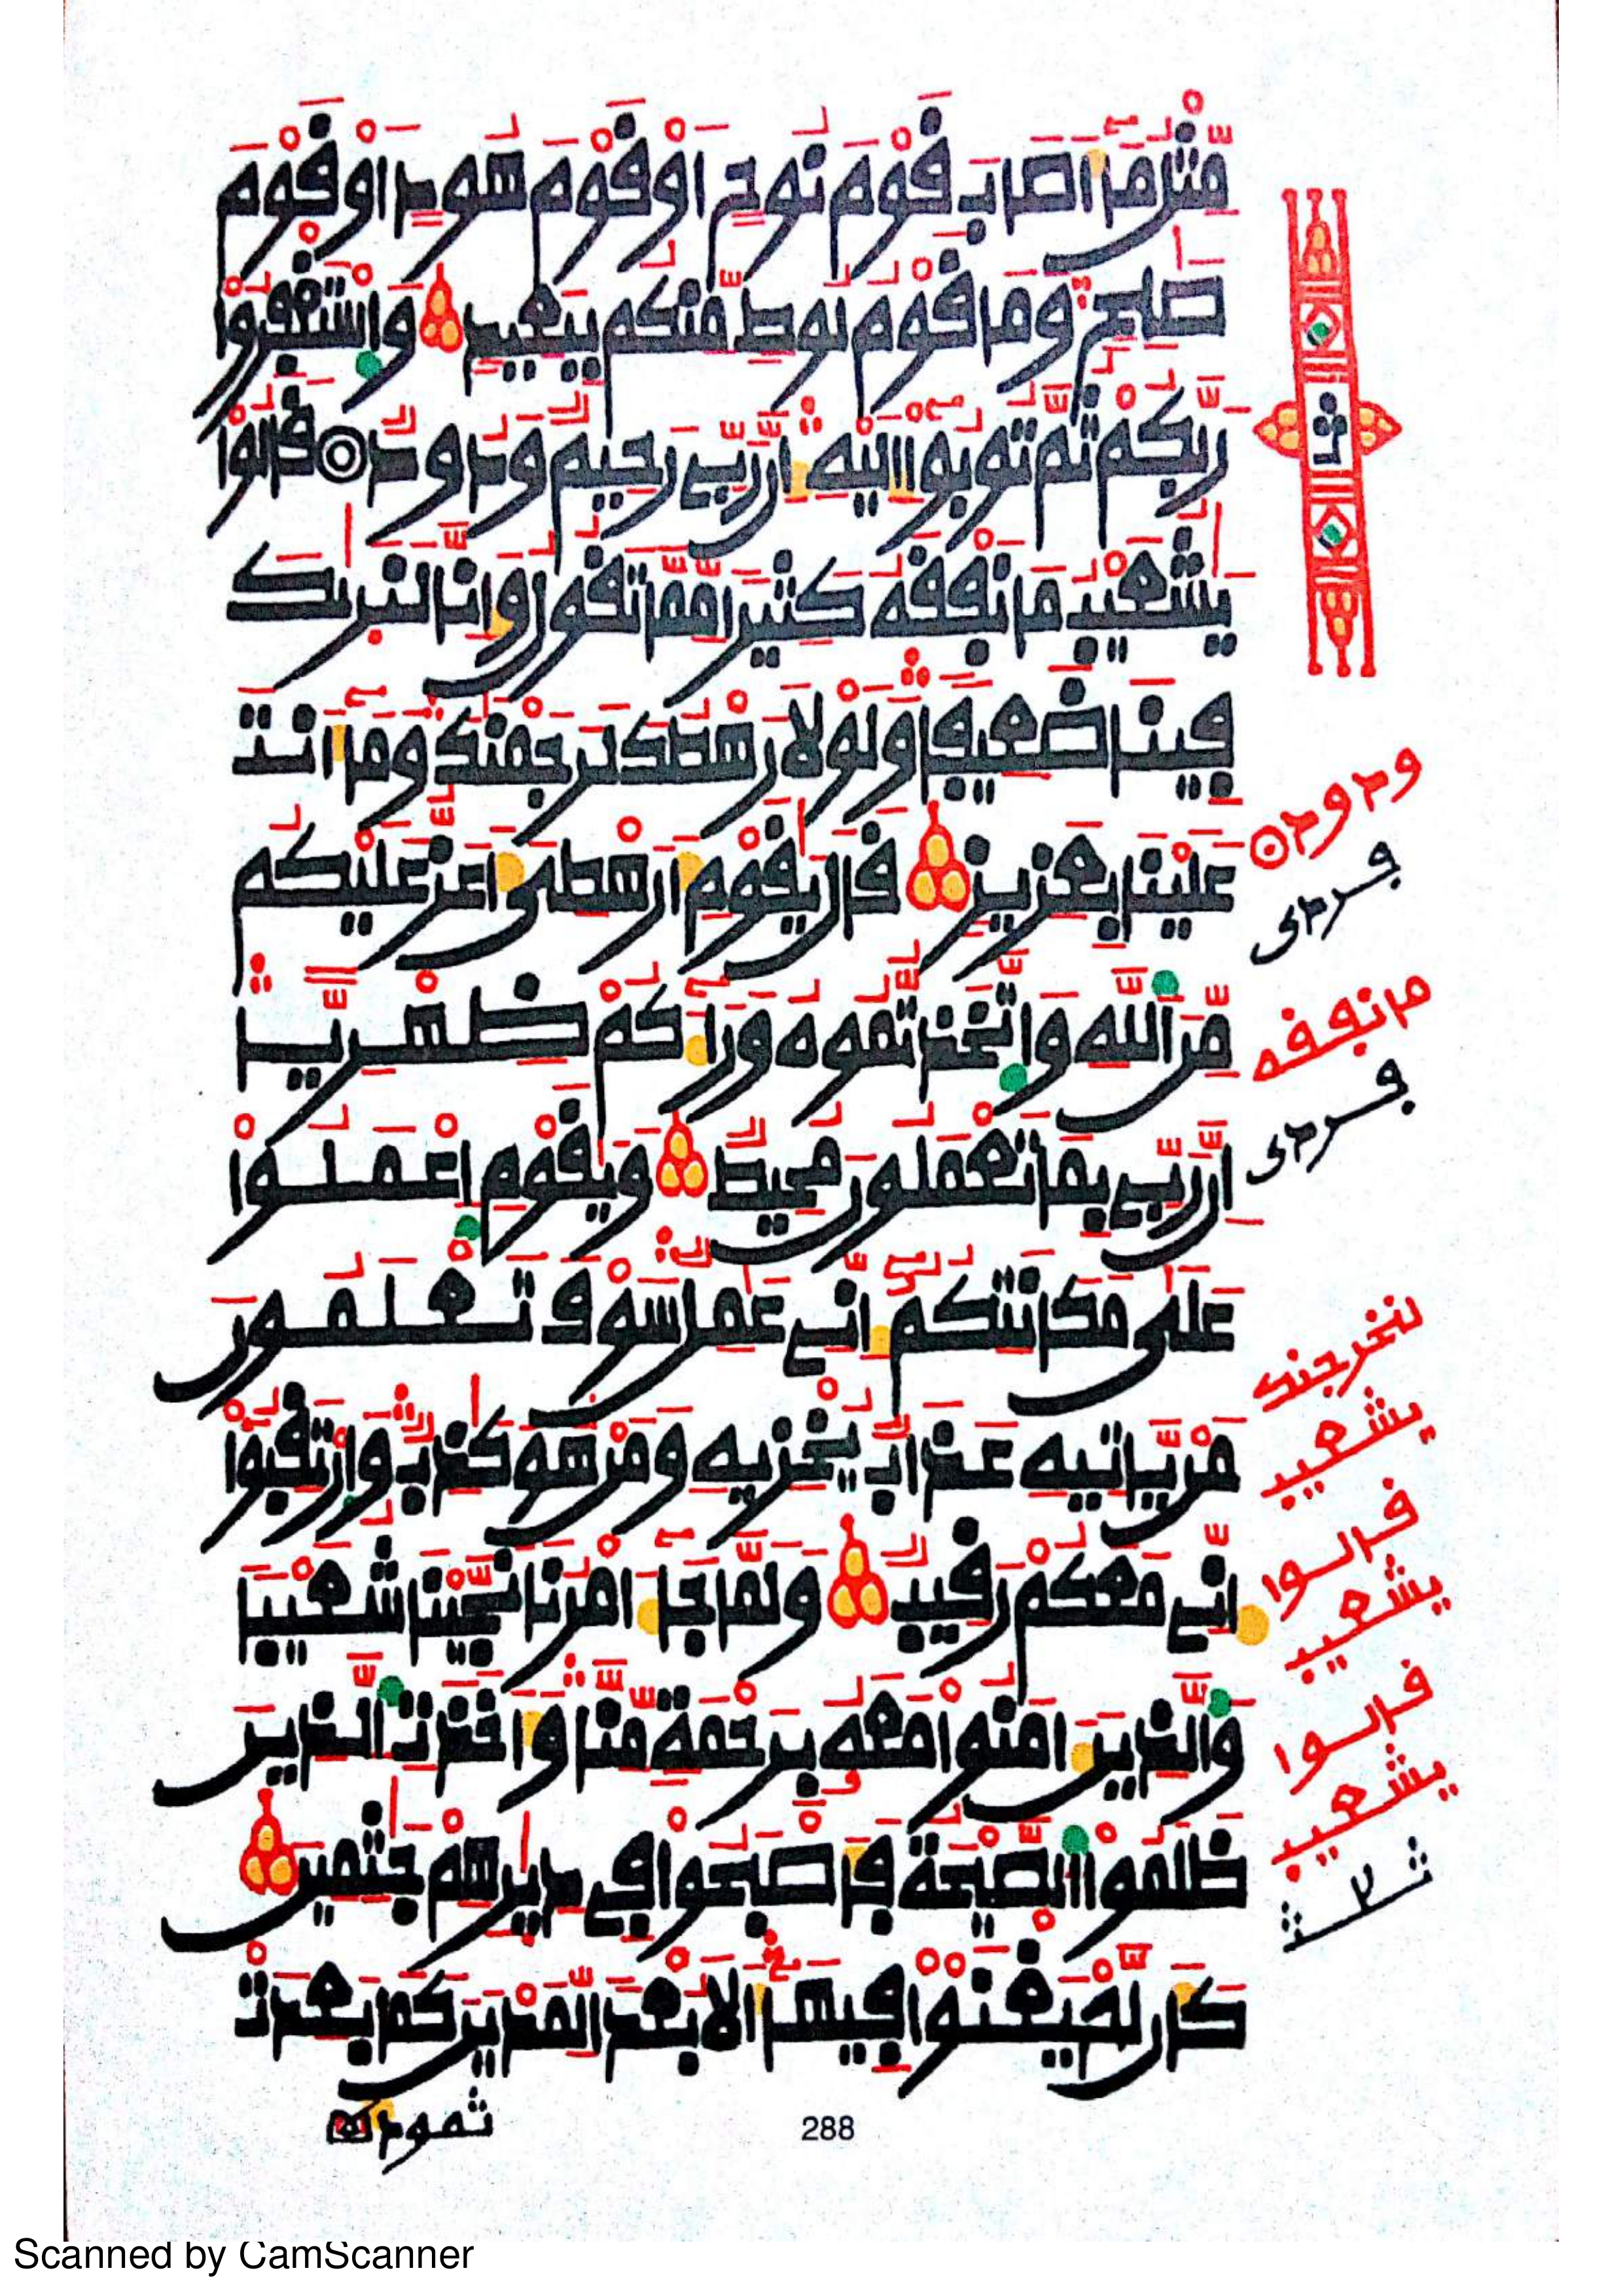 مِّثْلُ مَآ أَصَابَ قَوْمَ نُوحٍ أَوْ قَوْمَ هُودٍ أَوْ قَوْمَ
صَٰلِحٍ وَمَا قَوْمُ لُوطٍ مِّنكُم بِبَعِيدٍ وَاسْتَغْفِرُوا
رَبَّكُمْ ثُمَّ تُوبُوا إِلَيْهِ إِنَّ رَبِّي رَحِيمٌ وَدُودٌ قَالُوا
يَٰشُعَيْبُ مَا نَفْقَهُ كَثِيرًا مِّمَّا تَقُولُ وَإِنَّا لَنَرَىٰكَ
فِينَا ضَعِيفًا وَلَوْلَا رَهْطُكَ لَرَجَمْنَٰكَ وَمَآ أَنتَ
عَلَيْنَا بِعَزِيزٍ قَالَ يَٰقَوْمِ أَرَهْطِي أَعَزُّ عَلَيْكُم
مِّنَ اللَّهِ وَاتَّخَذتُّمُوهُ وَرَآءَكُمْ ظِهْرِيًّا
إِنَّ رَبِّي بِمَا تَعْمَلُونَ مُحِيطٌ وَيَٰقَوْمِ اعْمَلُوا
عَلَىٰ مَكَانَتِكُمْ إِنِّي عَٰمِلٌ سَوْفَ تَعْلَمُونَ
مَن يَأْتِيهِ عَذَابٌ يُخْزِيهِ وَمَنْ هُوَ كَٰذِبٌ وَارْتَقِبُوا
إِنِّي مَعَكُمْ رَقِيبٌ وَلَمَّا جَآءَ أَمْرُنَا نَجَّيْنَا شُعَيْبًا
وَالَّذِينَ ءَامَنُوا مَعَهُ بِرَحْمَةٍ مِّنَّا وَأَخَذَتِ الَّذِينَ
ظَلَمُوا الصَّيْحَةُ فَأَصْبَحُوا فِي دِيَٰرِهِمْ جَٰثِمِينَ
كَأَن لَّمْ يَغْنَوْا فِيهَآ أَلَا بُعْدًا لِّمَدْيَنَ كَمَا بَعِدَتْ
ثمود
ثمن
ودود
فردى
ما نفقه
فردى
لنخرجنك
يشعيب
قالوا
يشعيب
قالوا
يشعيب
288
Scanned by CamScanner